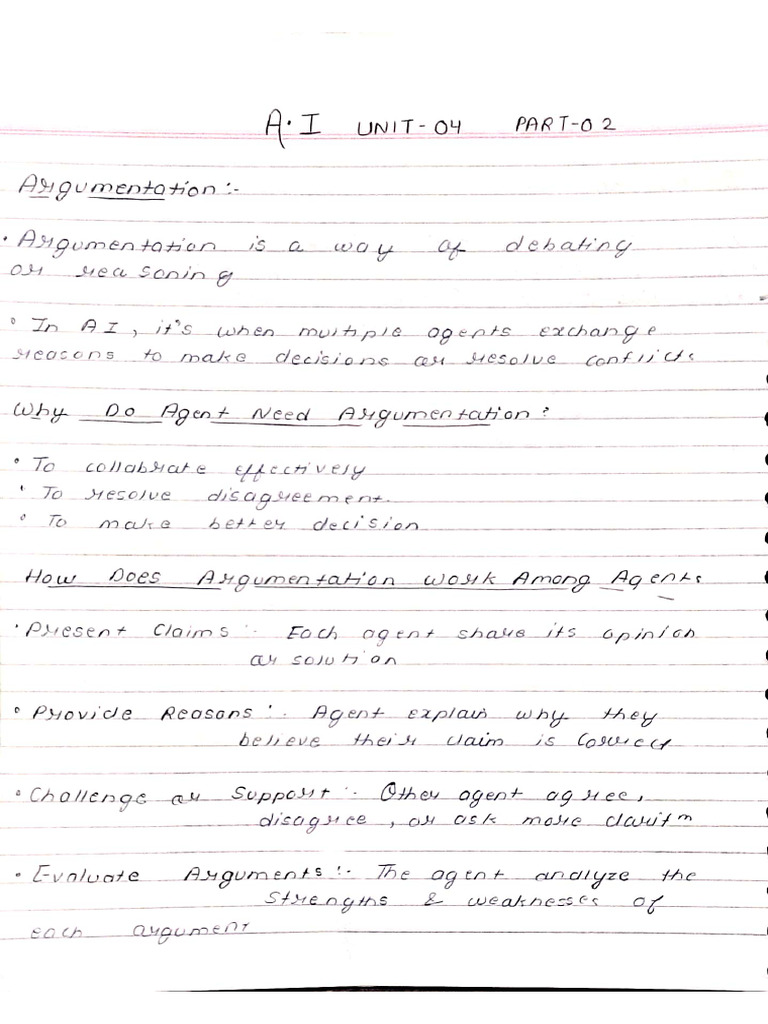 A.I UNIT-04 PART-02
Argumentation :-
• Argumentation is a way of debating
or reasoning
• In AI, it's when multiple agents exchange
reasons to make decisions or resolve conflicts
Why Do Agent Need Argumentation?
• To collabrate effectively
• To resolve disagreement.
• To make better decision
How Does Argumentation work Among Agents
• Present Claims :- Each agent share its opinion
or solution
• Provide Reasons :- Agent explain why they
believe their claim is correct
• Challenge or Support :- Other agent agree,
disagree, or ask more
• Evaluate Arguments :- The agent analyze the
strengths & weaknesses of
each argument